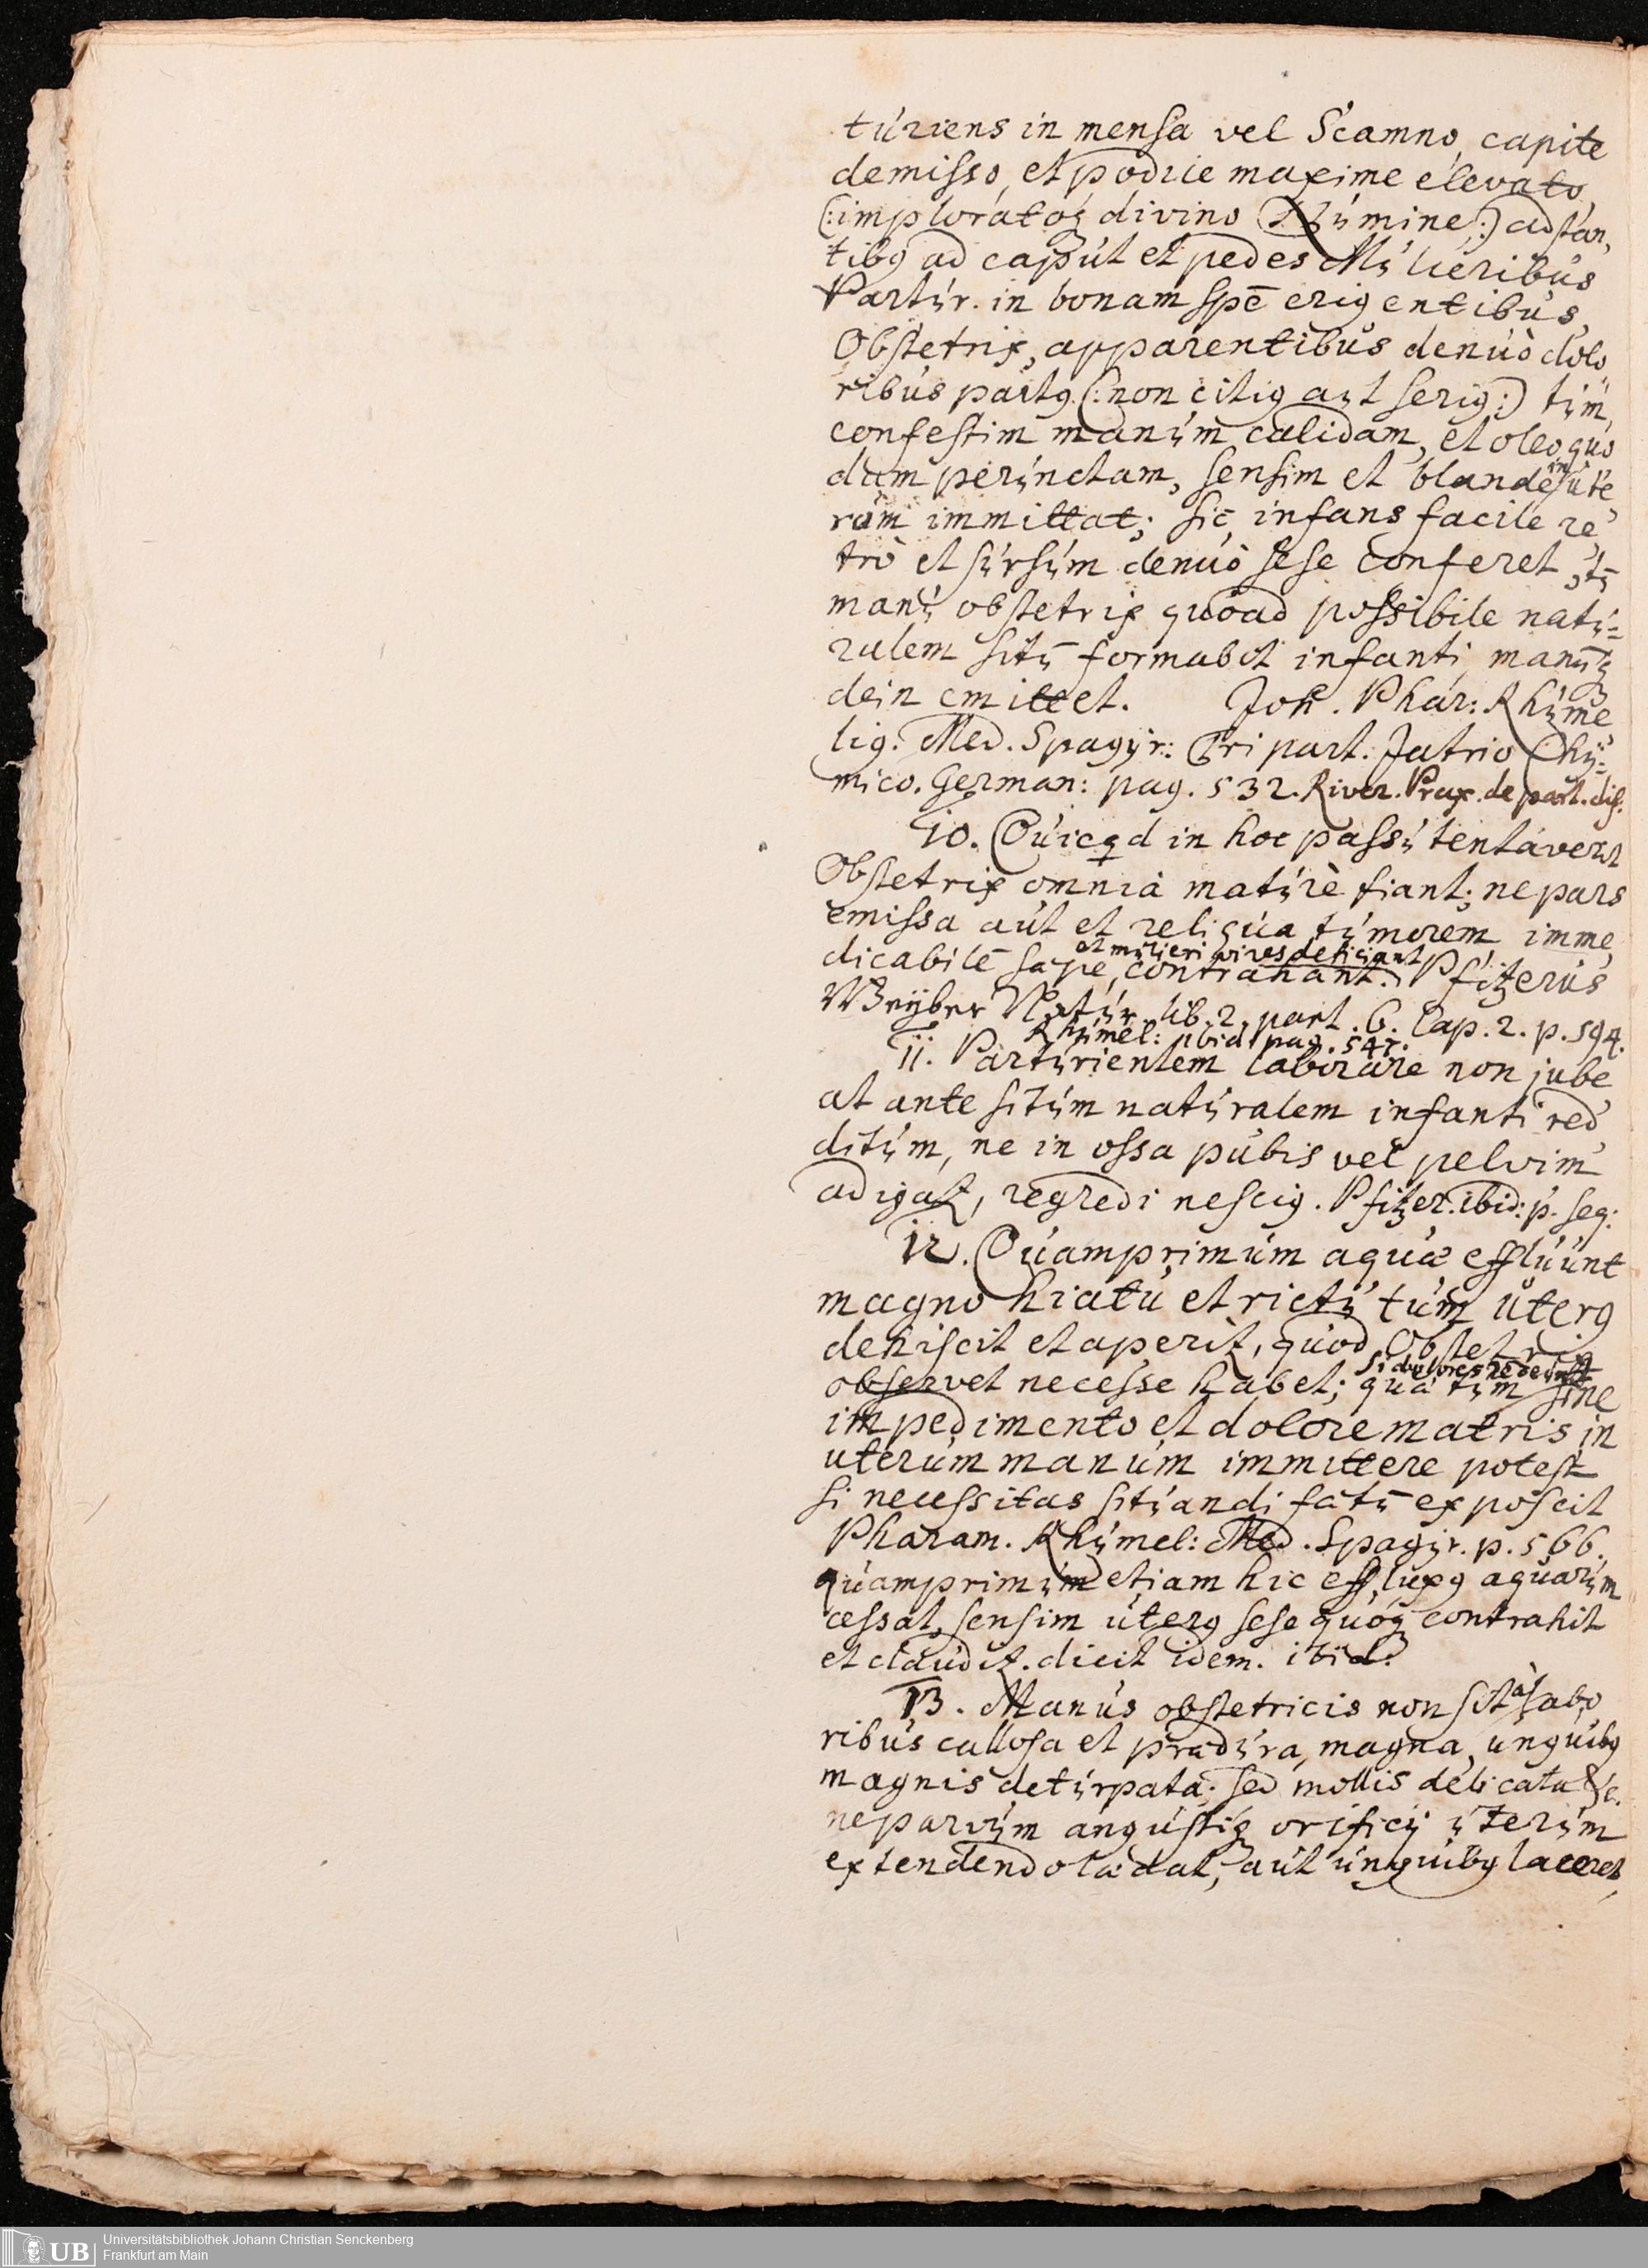 turiens in mensa vel Scamno, capite
demisso, et podice maxime elevato,
(: imploratoq; divino Numine:) adstan,
tibg ad caput et pedes Mulieribus
Partur. in bonam spē erigentibus,
Obstetrix, apparentibus denuò dolo
ribus partg (: non citig aut serig:) tum,
confestim manum calidam, et oleo quo
dam perunctam, sensim et blandè in ute
rum immittat; sic infans facile re
trò et sursum denuò sese conferet, tū
manu obstetrix quoad possibile natu=
ralem sitū formabit infanti, manūq;
dein emittet. Joh. Phar: Rhume
lig. Med. Spagyr: Tripart: Jatrio Chy=
mico. German: pag. 532. River. Prax. de part. dif.
10. Quicqd in hoc passu tentaverit
Obstetrix omnia maturè fiant; ne pars
emissa aut et reliqua tumorem imme
dicabilē sæpe, contrahant.
et mulieri vires deficiant
Pfitzerus
Weyber Natur lib. 2. part. 6. Cap. 2. p. 594.
Rhumel: ibid pag. 547.
11. Parturientem laborare non jube
at ante situm naturalem infanti red
ditum, ne in ossa pubis vel pelvim
adigat, regredi nescig. Pfitzer. ibid: p. seq:
12. Quamprimum aquæ effluunt
magno hiatu et rictu tum uterg
dehiscit et aperit, quod Obstetrix
observet necesse habet; quæ tum sine
si dolores redeunt
impedimento et dolore matris in
uterum manum immittere potest
si necessitas situandi fœtū exposcit
Pharam. Rhumel: Med. Spagyr. p. 566.
quamprimum etiam hic effluxg aquarum
cessat, sensim uterg sese quoq; contrahit
et claudit. dicit idem. ibid.
13. Manus obstetricis non sit à labo
ribus callosa et prædura, magna, unguibg
magnis deturpata. sed mollis delicata &c.
ne parvum angustiq; orificij uterum
extendendo lædat, aut unguibg laceret,
Universitätsbibliothek Johann Christian Senckenberg
Frankfurt am Main
UB